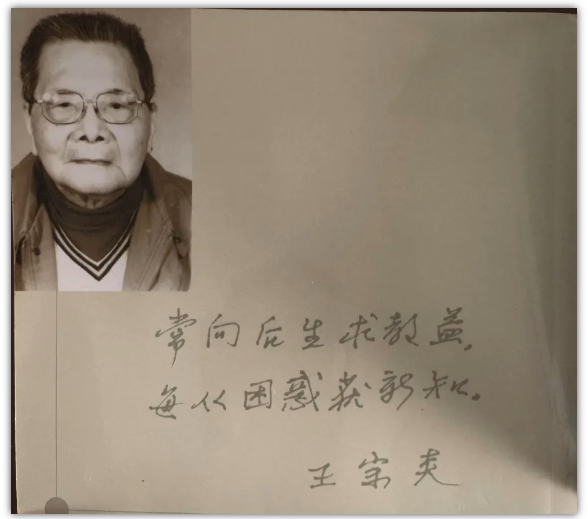 常向后生求教益,
每从困惑获新知。
王宗炎